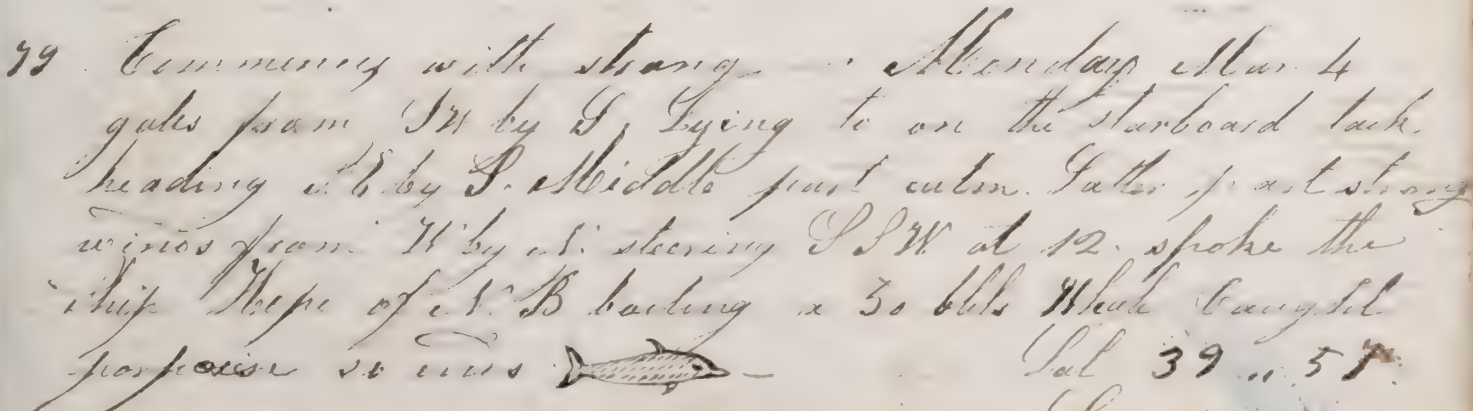 79 Commences with strong Monday Mar 4
gales from SW by S, Lying to on the starboard tack
heading by S. Middle part calm. Latter part strong
winds from W by N. steering SSW at 12 spoke the
ship Hope of N. B boiling a 30 bbls Whale Caught
porpoise so ends
Lat 39 " 57